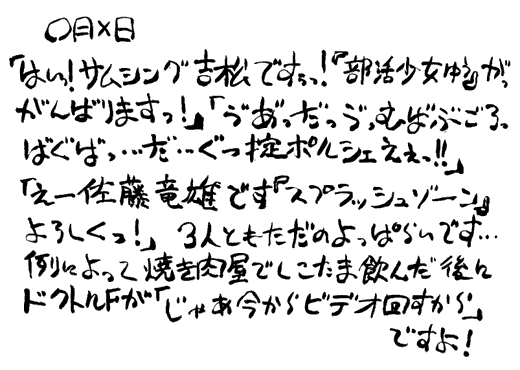 〇月×日
「はいっ!サムシング吉松ですぅっ!『部活少女ゆき』がっ
がんばりますっ!」「ゔあ゙っだっゔっむばぶごろっ
ばぐばっ…だ…ぐっ掟ポルシェえぇっ!!」
「えー佐藤竜雄です『スプラッシュゾーン』
よろしくっ!」 3人ともただのよっぱらいです…
例によって焼き肉屋でしこたま飲んだ後に
ドクトルFが「じゃあ今からビデオ回すから」
ですよ!